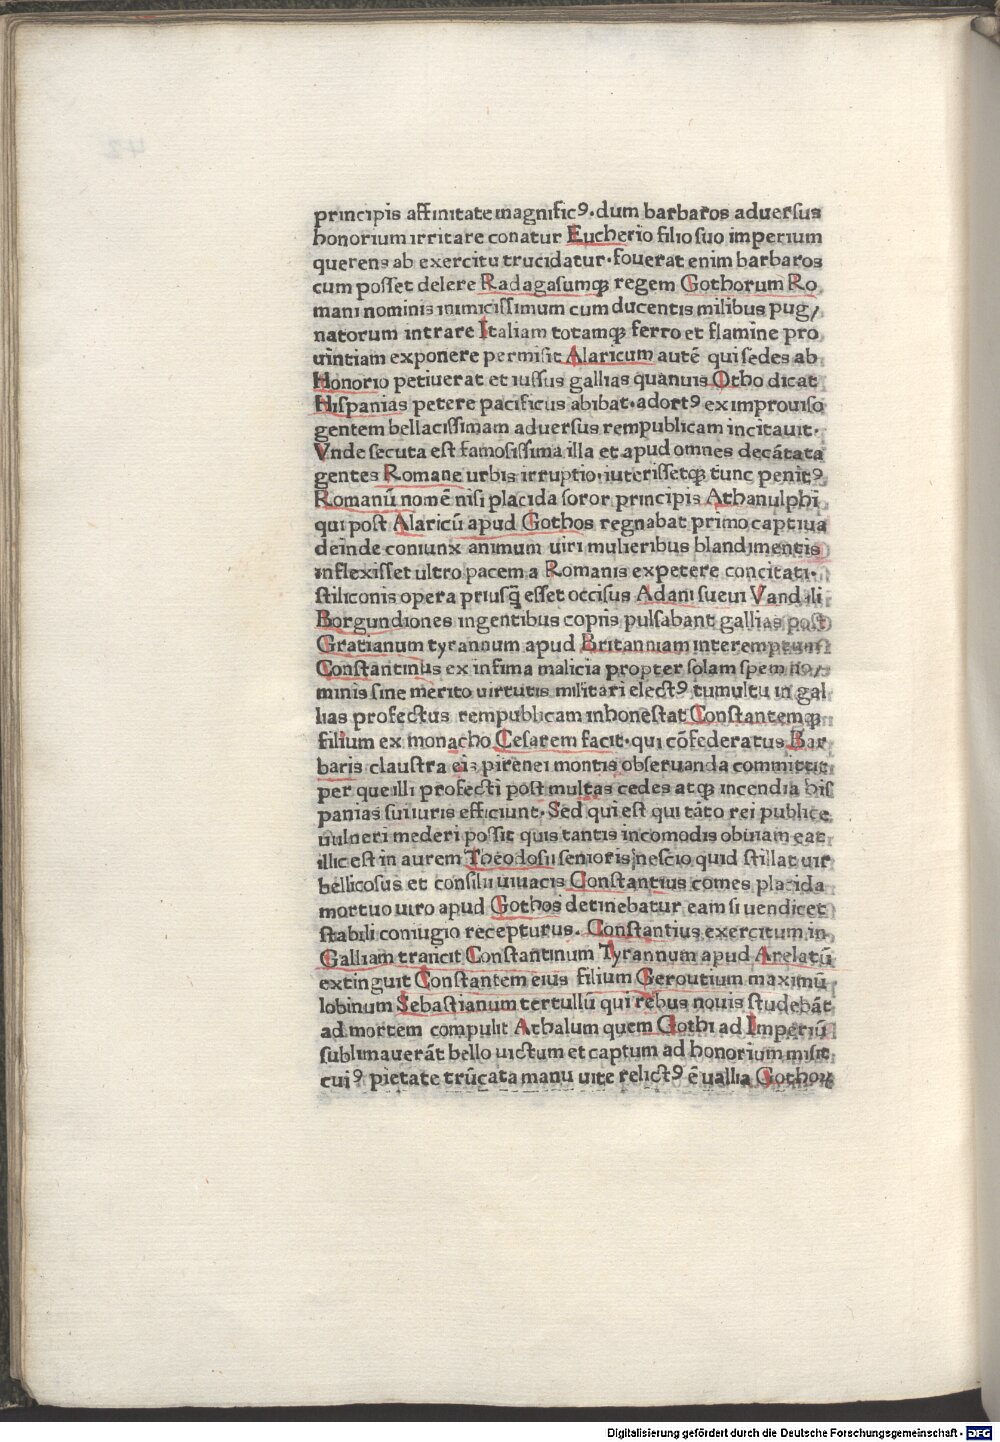 principis affinitate magnificꝰ·dum barbaros aduerſus
honorium irritare conatur Eucherio filio ſuo imperium
querens ab exercitu trucidatur·fouerat enim barbaros
cum poſſet delere Radagaſumqꝫ regem Gothorum Ro
mani nominis inimiciſſimum cum ducentis milibus pug/
natorum intrare Italiam totamqꝫ ferro et flamine pro
uintiam exponere permiſit Alaricum autē qui ſedes ab
Honorio petiuerat et iuſſus gallias quamuis Otho dicat
Hiſpanias petere pacificus abibat·adortꝰ ex improuiſo
gentem bellaciſſimam aduerſus rempublicam incitauit·
Vnde ſecuta eſt famoſiſſima illa et apud omnes decātata
gentes Romane urbis irruptio·iuteriſſetqꝫ tunc penitꝰ
Romanū nomē niſi placida ſoror principis Athanulphi
qui poſt Alaricū apud Gothos regnabat primo captiua
deinde coniunx animum uiri mulieribus blandimentis
inflexiſſet ultro pacem a Romanis expetere concitati·
ſtiliconis opera priusq̄ eſſet occiſus Adani ſueui Vandali
Borgundiones ingentibus copiis pulſabant gallias poſt
Gratianum tyrannum apud Britanniam interemptum
Conſtantinus ex infima malicia propter ſolam ſpem no/
minis ſine merito uirtutis militari electꝰ tumultu in gal
lias profectus rempublicam inhoneſtat Conſtantemqꝫ
filium ex monacho Ceſarem facit·qui cōfederatus Bar
baris clauſtra eis pirenei montis obſeruanda committit
per que illi profecti poſt multas cedes atqꝫ incendia hiſ
panias ſui iuris efficiunt·Sed qui eſt qui tāto rei publice
uulneri mederi poſſit quis tantis incomodis obuiam eat
illic eſt in aurem Theodoſii ſenioris neſcio quid ſtillat uir
bellicoſus et conſilii uiuacis Conſtantius comes placida
mortuo uiro apud Gothos detinebatur eam ſi uendicet
ſtabili coniugio recepturus. Conſtantius exercitum in
Galliam trancit Conſtantinum Tyrannum apud Arelatū
extinguit Conſtantem eius filium Geroutium maximū
lobinum Sebaſtianum tertullū qui rebus nouis ſtudebāt
ad mortem compulit Athalum quem Gothi ad Imperiū
ſublimauerāt bello uictum et captum ad honorium miſit
cuiꝰ pietate trūcata manu uite relictꝰ ē uallia Gothoꝝ
Digitalisierung gefördert durch die Deutsche Forschungsgemeinschaft - DFG